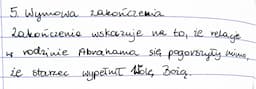 5. Wymowa zakończenia
Zakończenie wskazuje na to, że relacje
w rodzinie Abrahama się pogorszyły mimo,
że starzec wypełnił Wolę Bożą.